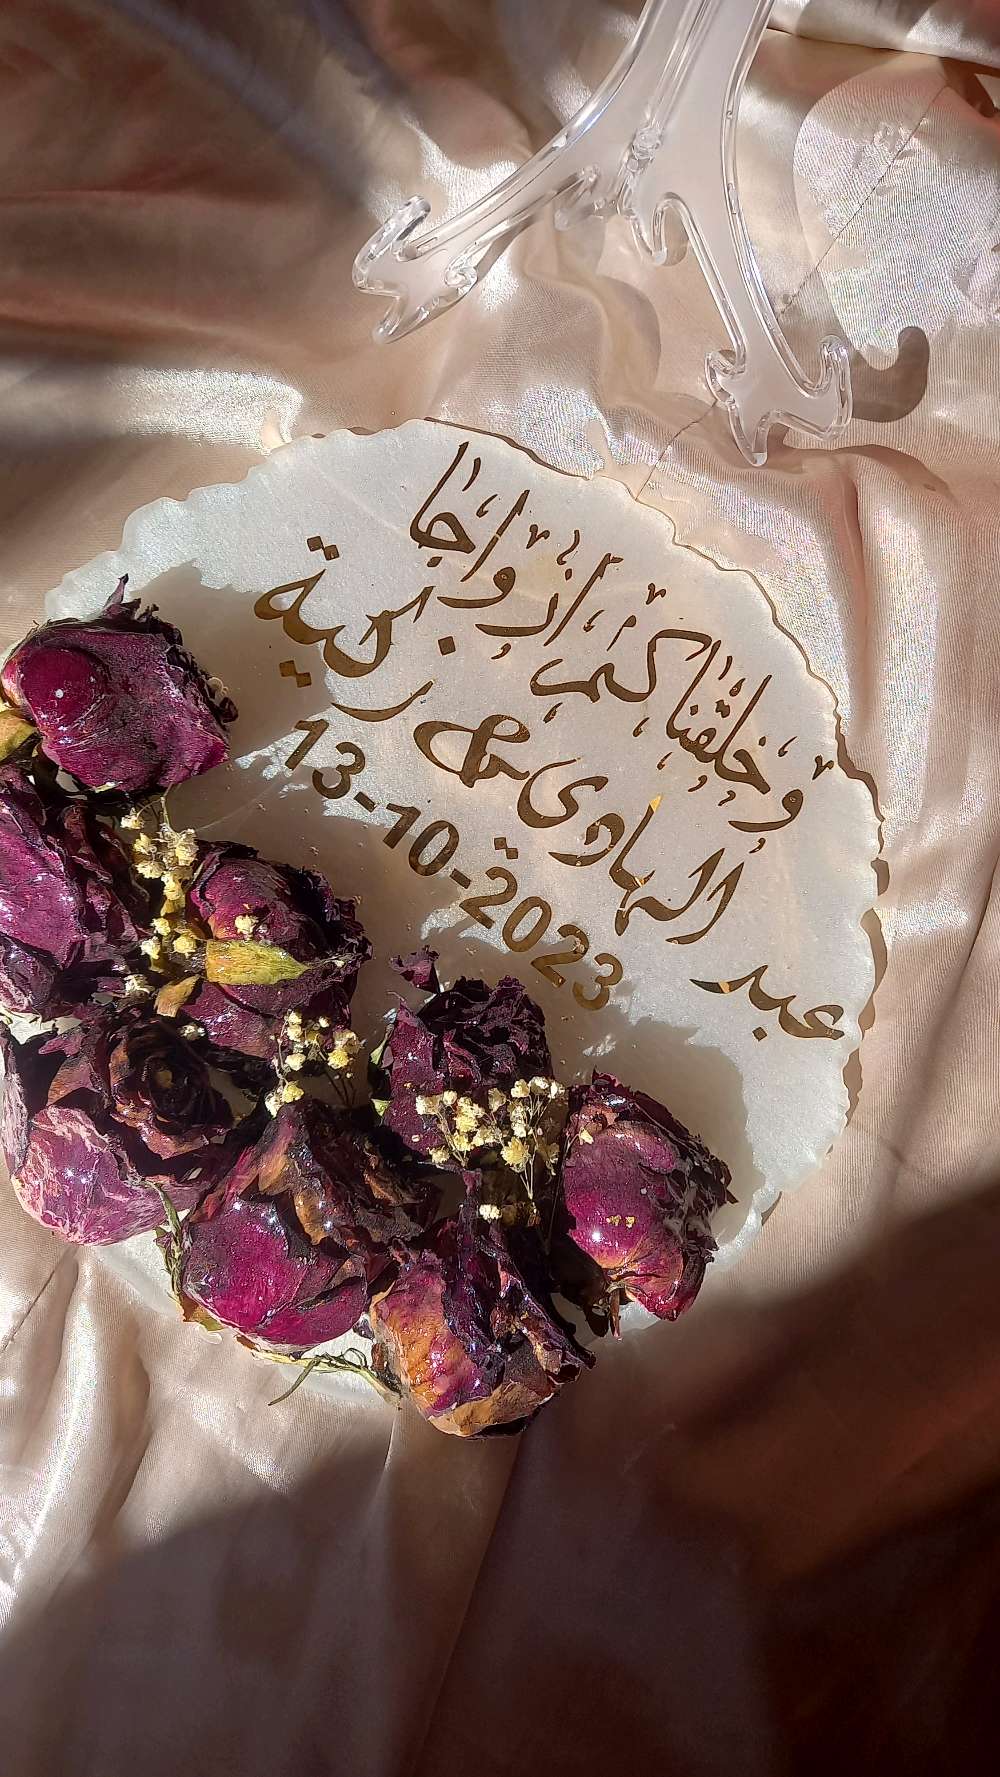 وَخَلَقْنَاكُمْ أَزْوَاجًا
عبد الهادي & زكية
13-10-2023